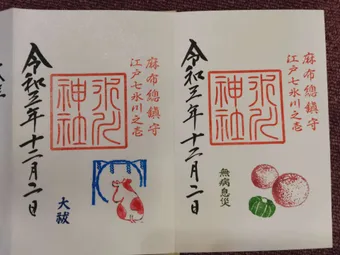 麻布總鎮守
江戸七氷川之壱
氷川
神社
無病息災
令和三年十二月二日
麻布總鎮守
江戸七氷川之壱
氷川
神社
大祓
令和三年十二月二日